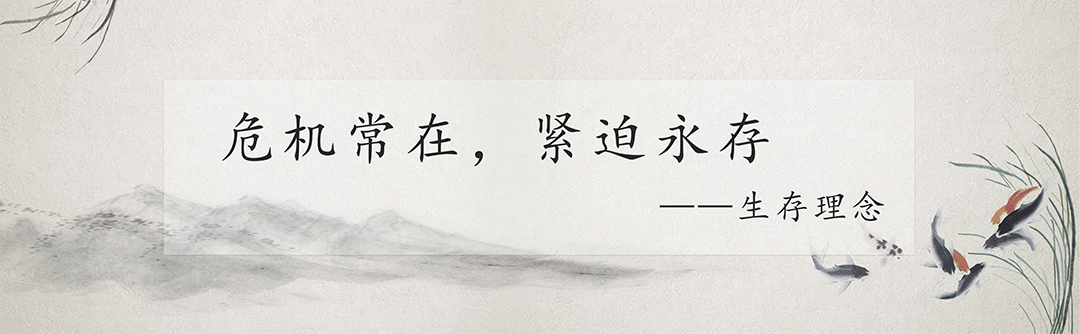 危机常在，紧迫永存
——生存理念